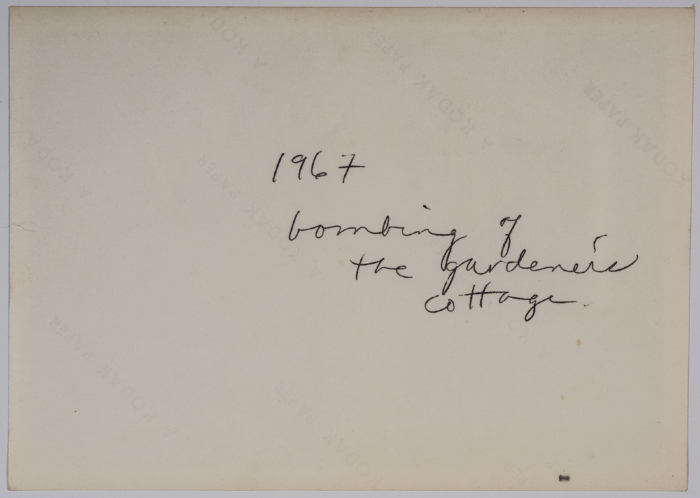 1967
bombing of
the gardener's
cottage.
A KODAK PAPER
A KODAK PAPER
KODAK PAPER
A KODAK PAPER
A KODAK PAPER
A KODAK PAPER